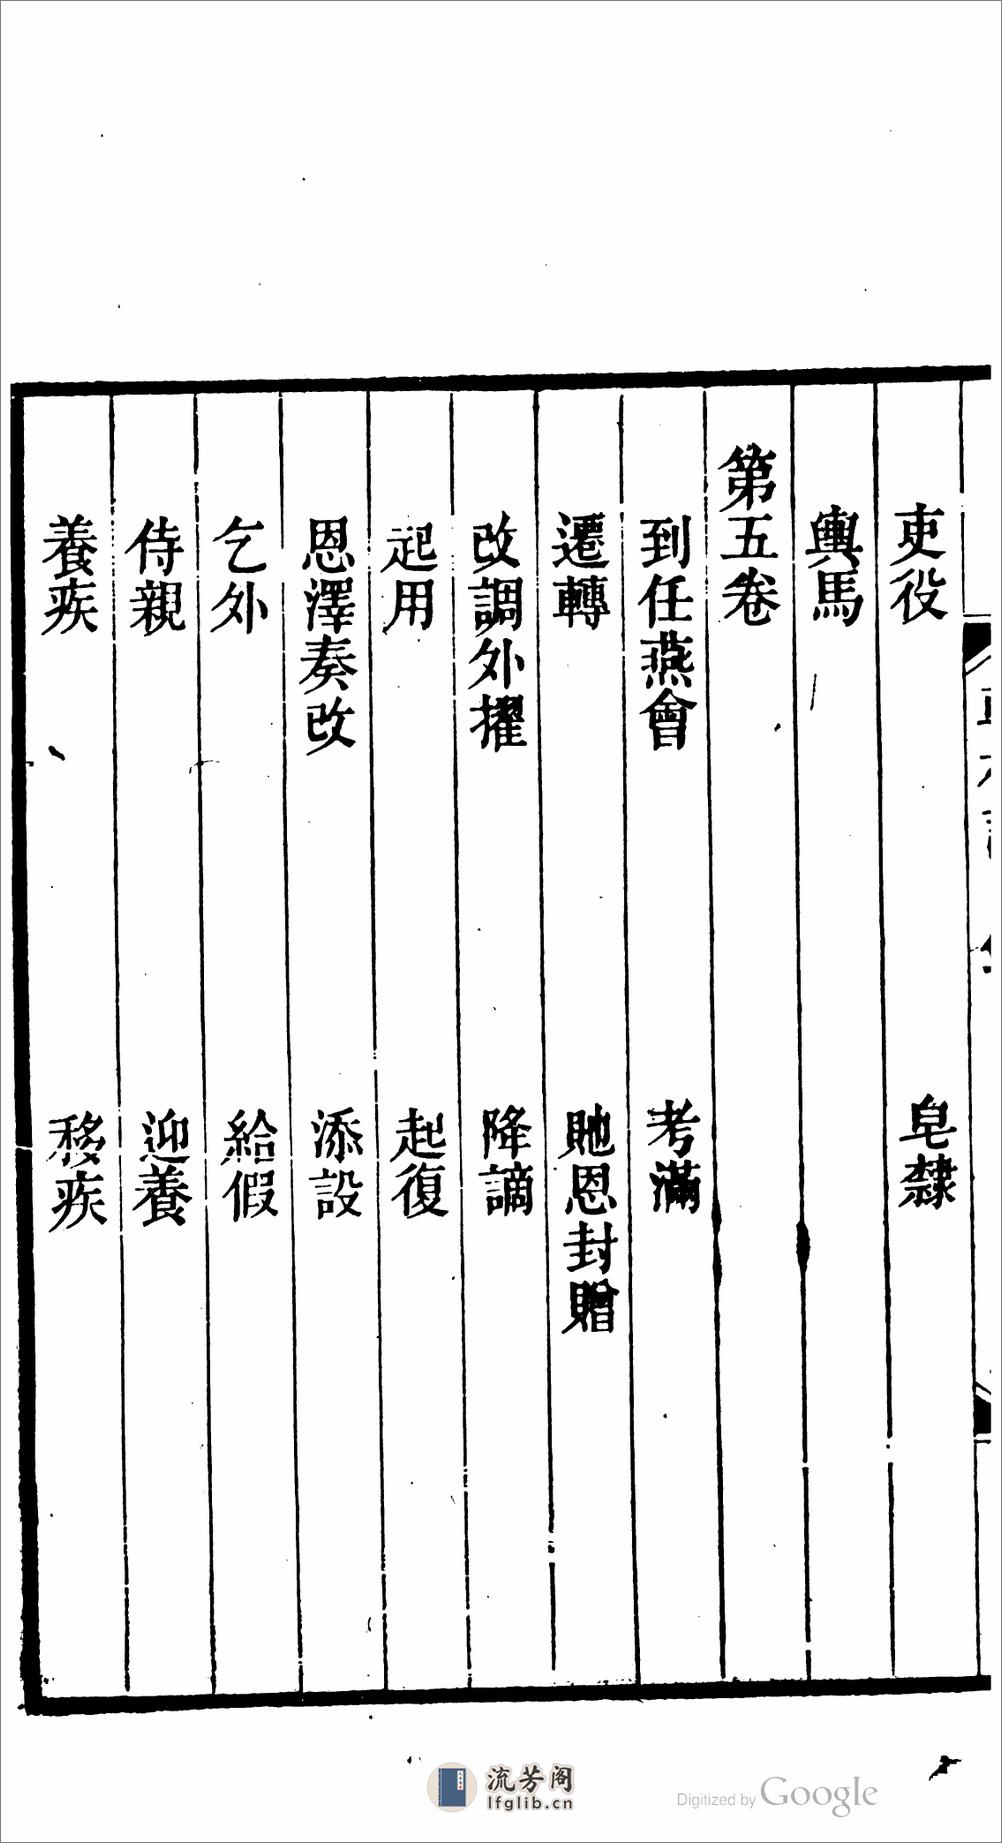 吏役　皂隸
輿馬
第五卷
到任燕會　考滿
遷轉　貤恩封贈
改調外擢　降謫
起用　起復
恩澤奏改　添設
乞外　給假
侍親　迎養
養疾　移疾
流芳阁
lfglib.cn
Digitized by Google